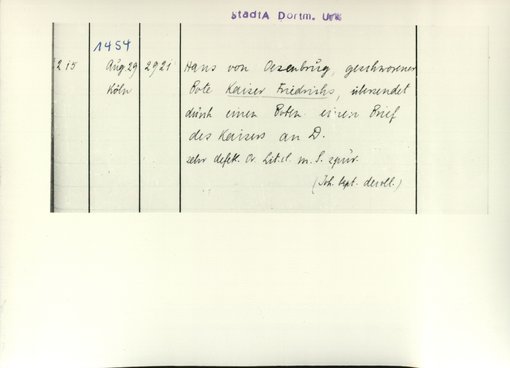 StadtA Dortm. Urk
1454
215 Aug 29 2921 Hans von Oesenbrüg, geschworener
Köln Bote Kaiser Friedrichs, übersendet
durch einen Boten einen Brief
des Kaisers an D.
sehr defekt. Or. Lit. cl. m. S. spür.
(Joh. bapt. decoll.)